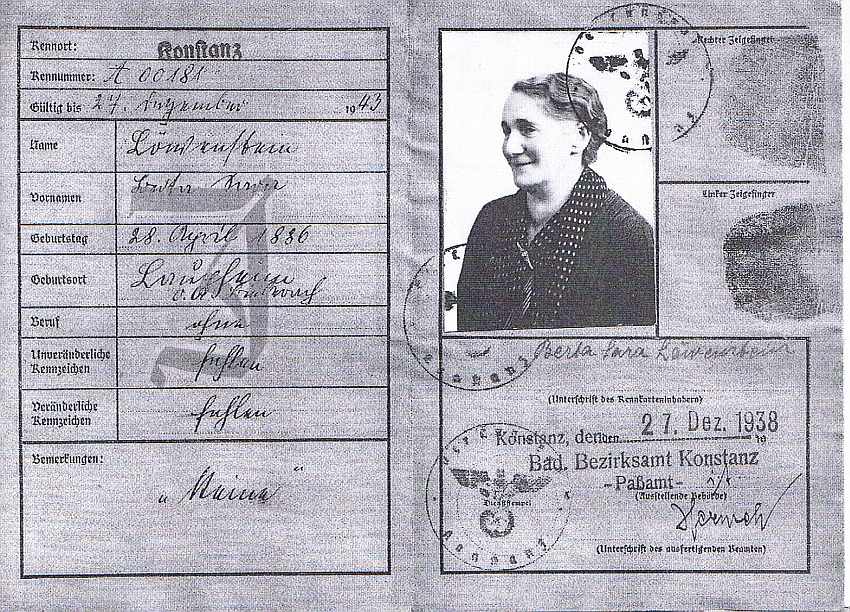 Kennort: Konstanz
Kennnummer: A 00181
Gültig bis 27. Dezember 1943
Name Löwenstein
Vornamen Berta Sara
J
Geburtstag 28. April 1886
Geburtsort
Beruf ohne
Unveränderliche Kennzeichen fehlen
Veränderliche Kennzeichen fehlen
Bemerkungen:
„Keine“
Rechter Zeigefinger
Linker Zeigefinger
Berta Sara Löwenstein
(Unterschrift des Kennkarteninhabers)
Konstanz, den 27. Dez. 1938
19
Bad. Bezirksamt Konstanz
-Paßamt-
(Ausstellende Behörde)
Dienststempel
(Unterschrift des ausfertigenden Beamten)